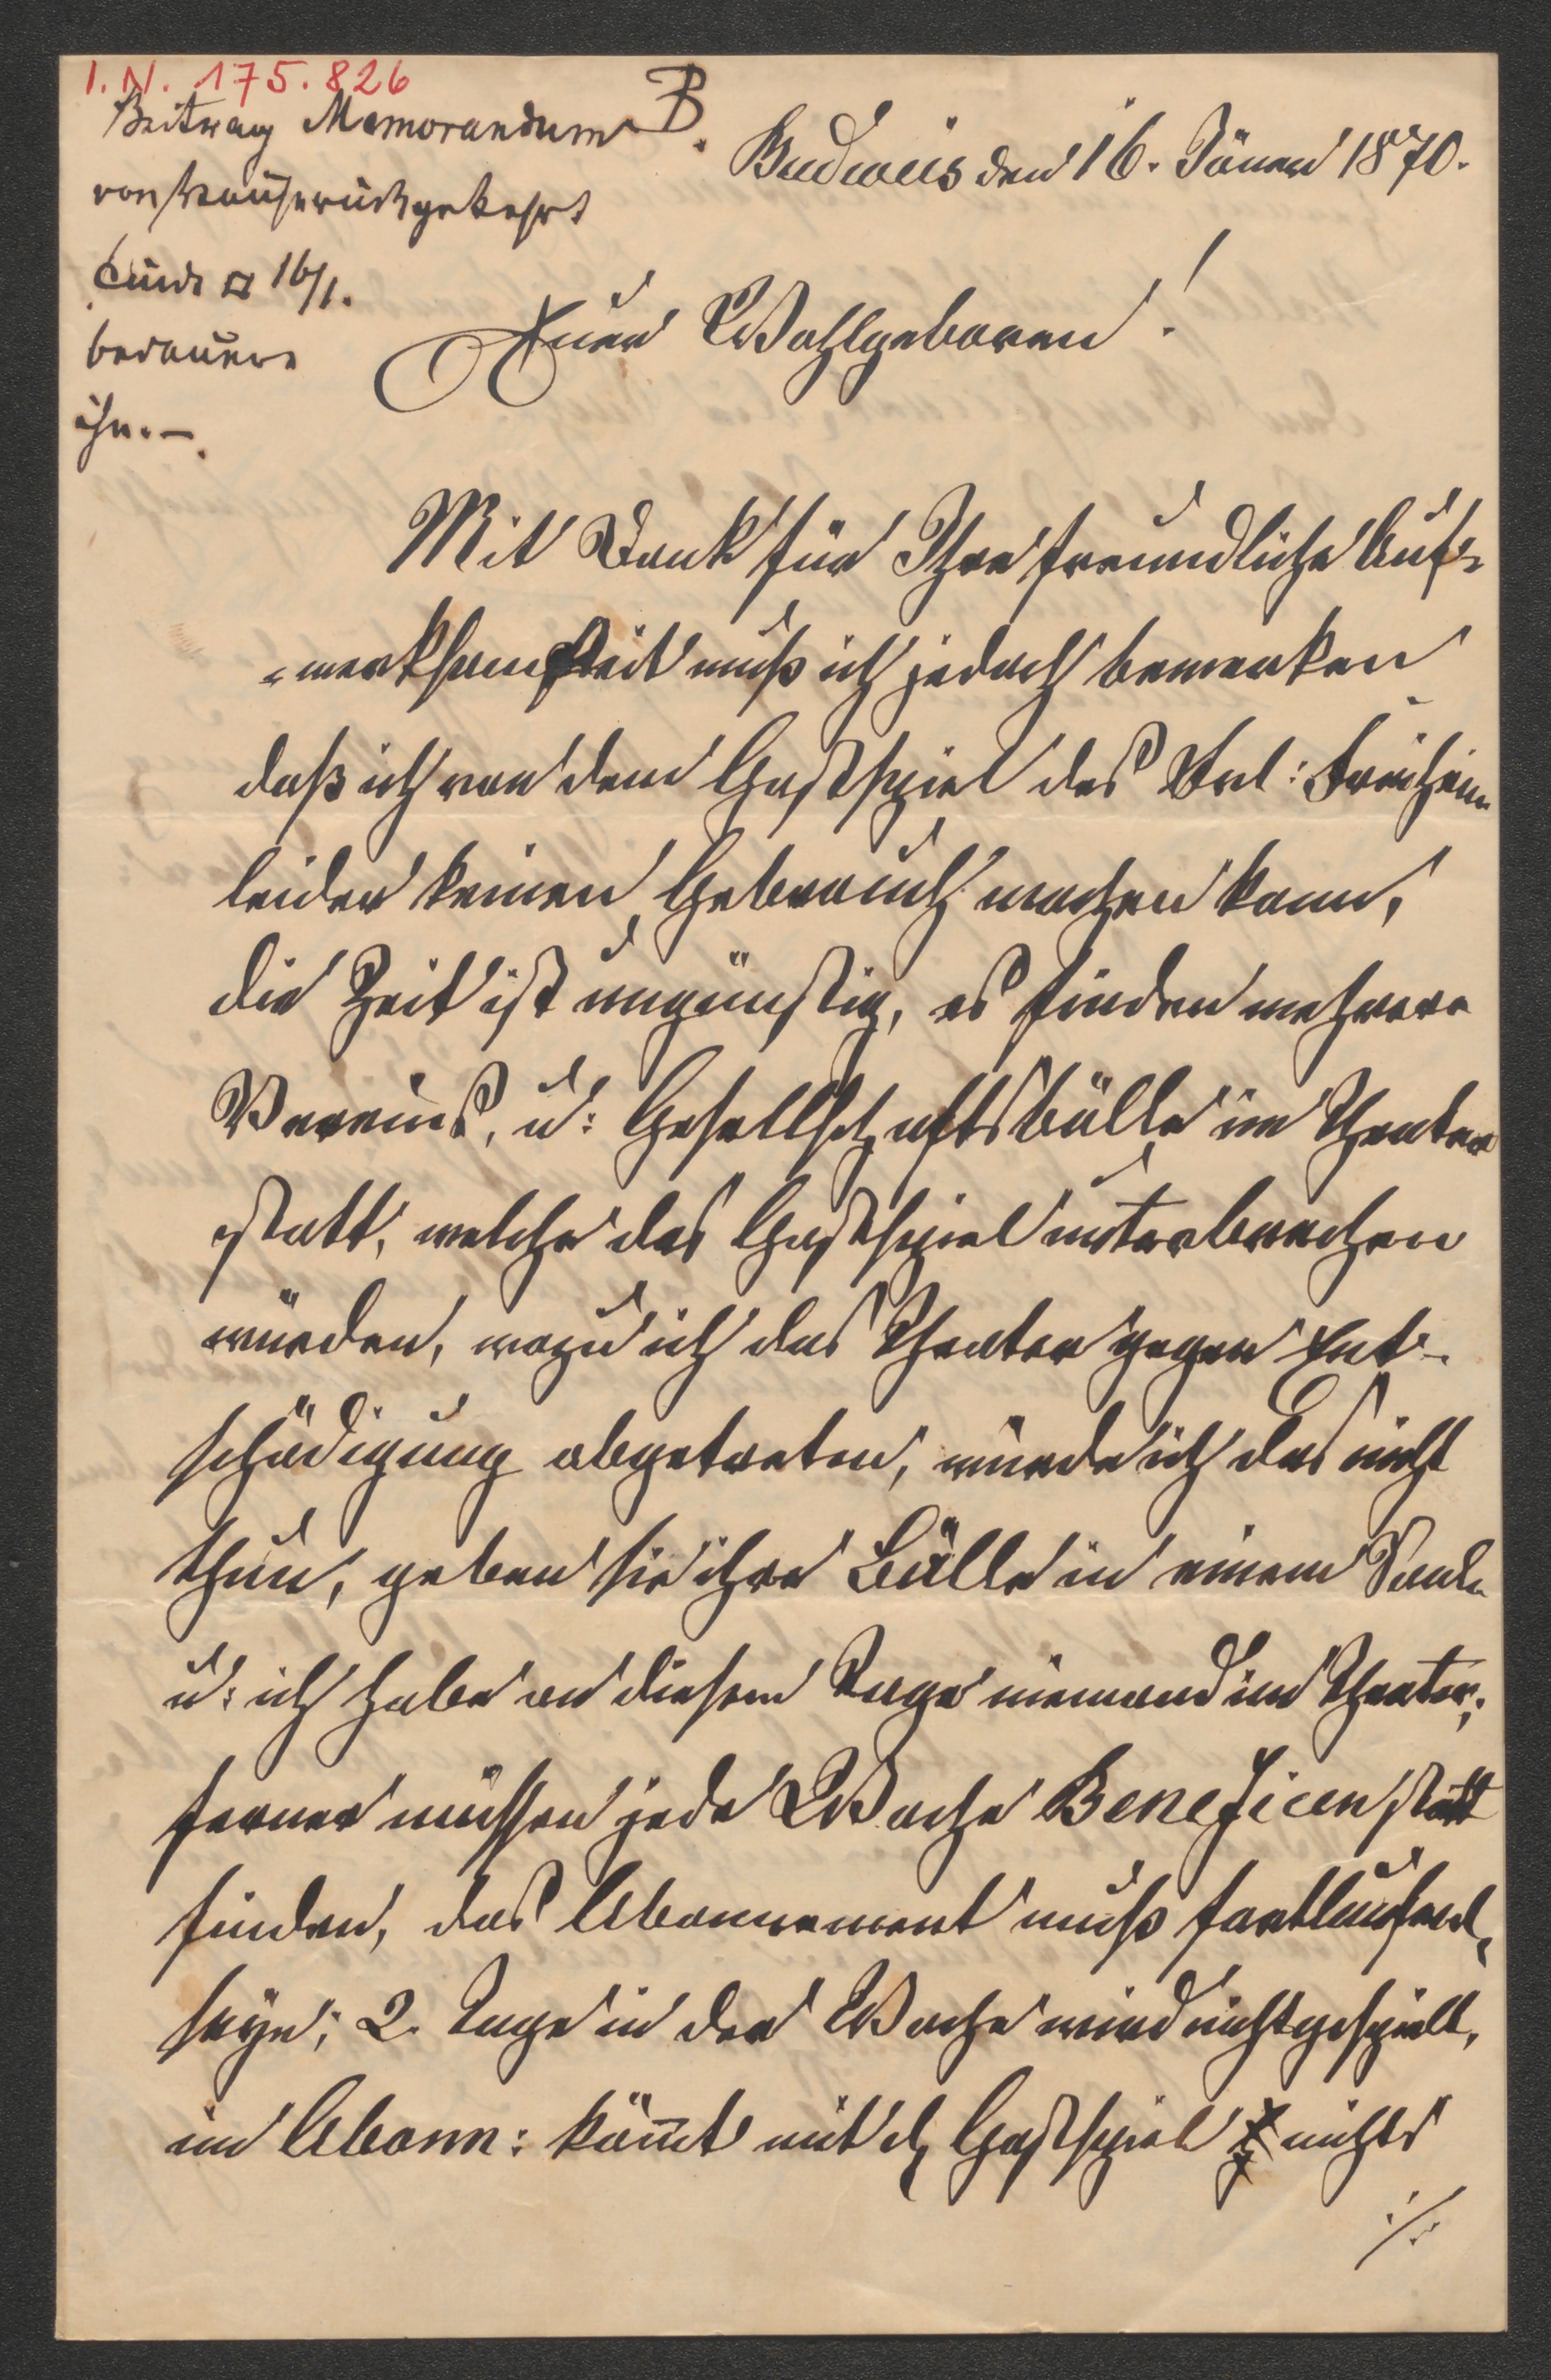 I.N. 175.826
Beitrag Memorandum B.
von zurückgekehrt
16/1.
bedauere
ihn.-.
Budweis den 16. Jäner 1870.
Euer Wohlgeboren!
Mit Dank für Ihre freundliche Auf-
-merksamkeit muß ich jedoch bemerken
daß ich von dem Gastspiel des Frl:
leider keinen Gebrauch machen kann,
die Zeit ist ungünstig, es finden mehrere
Vereins, u: Gesellschaftsbälle im Theater
statt, welche das Gastspiel unterbrechen
würden, wozu ich das Theater gegen Ent-
schädigung abgetreten, würde ich das nicht
thun, geben sie ihre Bälle in einem Saale
u: ich habe an diesem Tage niemand im Theater;
ferner müssen jede Woche Beneficen statt
finden, das Abonnement muß fortlaufend
seyn; 2. Tage in der Woche wird nicht gespielt,
im Abonn: kömt mit d Gastspiel nichts
./.